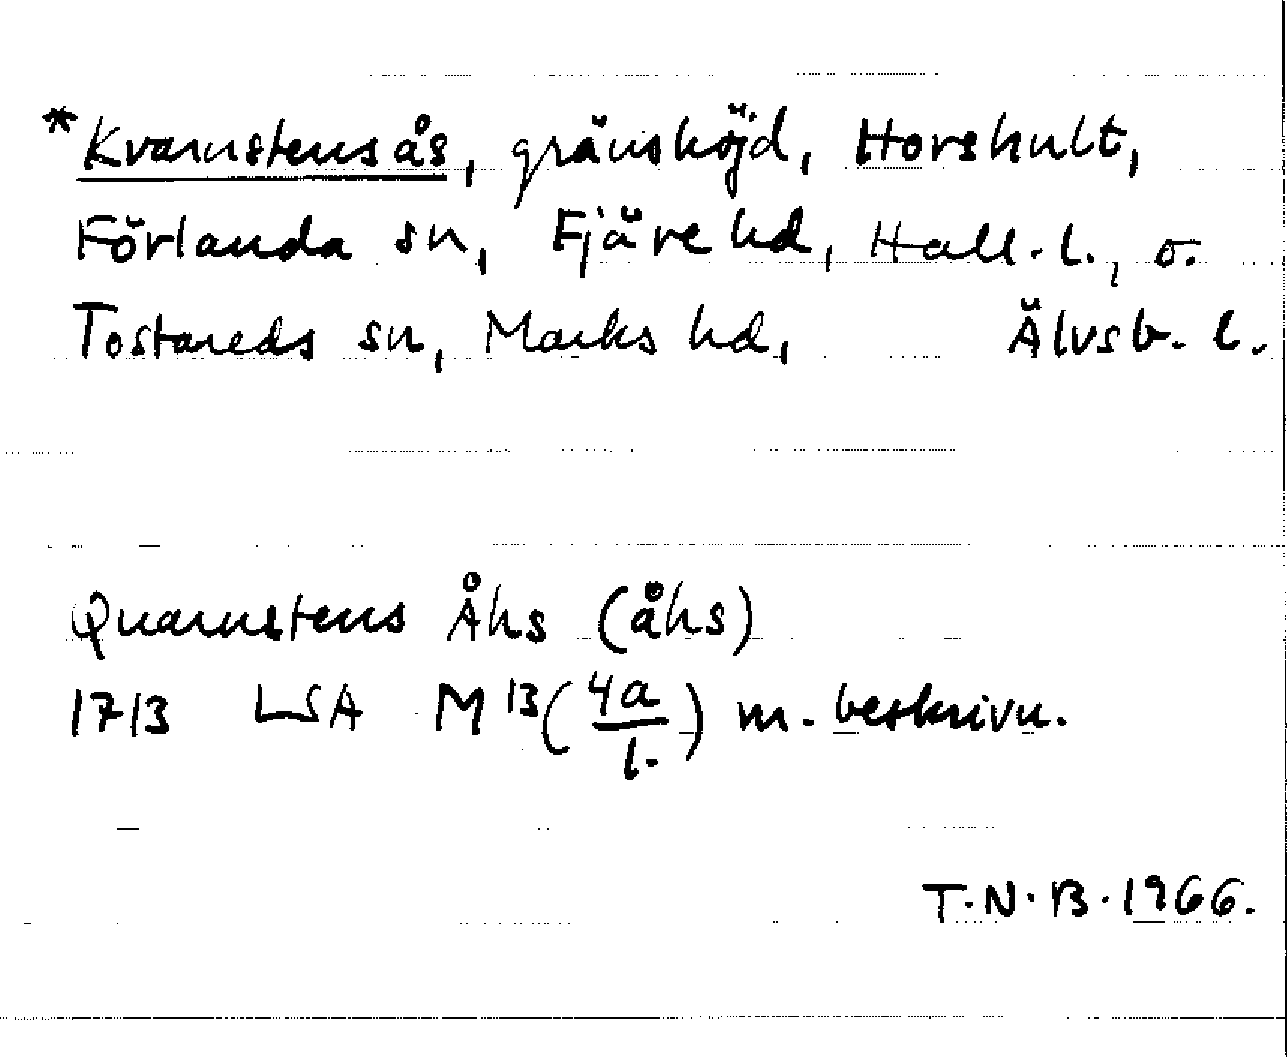 *Kvarnstensås, gränshöjd, Horshult,
Förlanda sn, Fjäre hd, Hall. l., o.
Tostareds sn, Marks hd, Älvsb. l.
Quarnstens Åhs (åhs)
1713 LSA M 13 (4a/1.) m. beskrivn.
T.N.B. 1966.